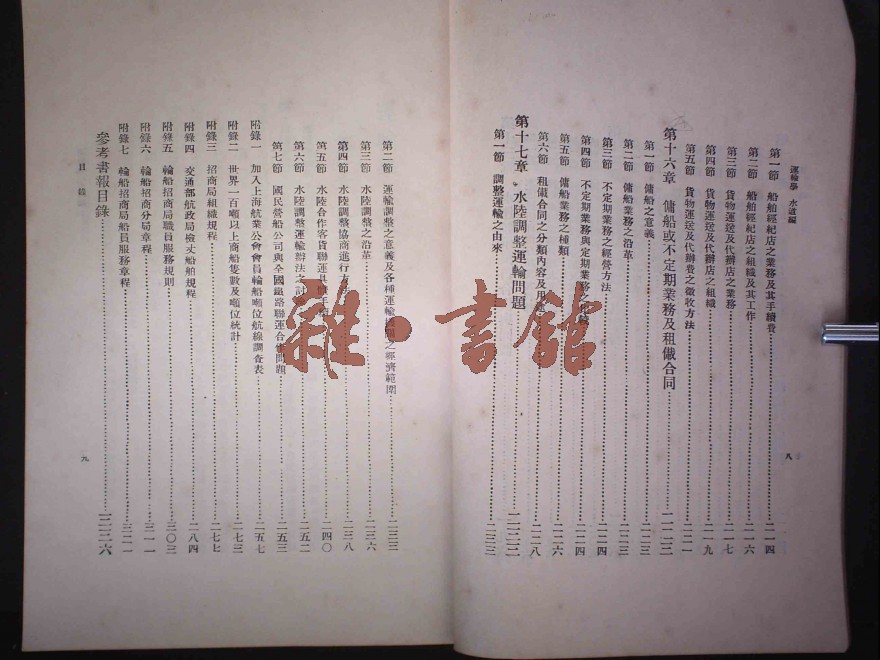 運輸學 水道編
第一節 船舶經紀店之業務及其手續費 二一四
第二節 船舶經紀店之組織及其工作 二一六
第三節 貨物運送及代辦店之業務 二一七
第四節 貨物運送及代辦店之組織 二一九
第五節 貨物運送及代辦費之徵收方法 二二一
第十六章 傭船或不定期業務及租儎合同 二二三
第一節 傭船之意義 二二三
第二節 傭船業務之沿革 二二三
第三節 不定期業務之經營方法 二二四
第四節 不定期業務與定期業務之 二二四
第五節 傭船業務之種類 二二六
第六節 租儎合同之分類內容及用 二二八
第十七章 水陸調整運輸問題 二三三
第一節 調整運輸之由來 二三三
八
第二節 運輸調整之意義及各種運輸 之經濟範圍 二三三
第三節 水陸調整之沿革 二三六
第四節 水陸調整協商進行方 二三八
第五節 水陸合作客貨聯運具體手 二四〇
第六節 水陸調整運輸辦法之討論 二五二
第七節 國民營船公司與全國鐵路聯運合作問題 二五三
附錄一 加入上海航業公會會員輪船噸位航線調查表 二五七
附錄二 世界一百噸以上商船隻數及噸位統計 二七三
附錄三 招商局組織規程 二七七
附錄四 交通部航政局檢丈船舶規程 二八四
附錄五 輪船招商局職員服務規則 三〇三
附錄六 輪船招商分局章程 三一一
附錄七 輪船招商局船員服務章程 三二一
參考書報目錄 三二六
目錄
九
雜·書館